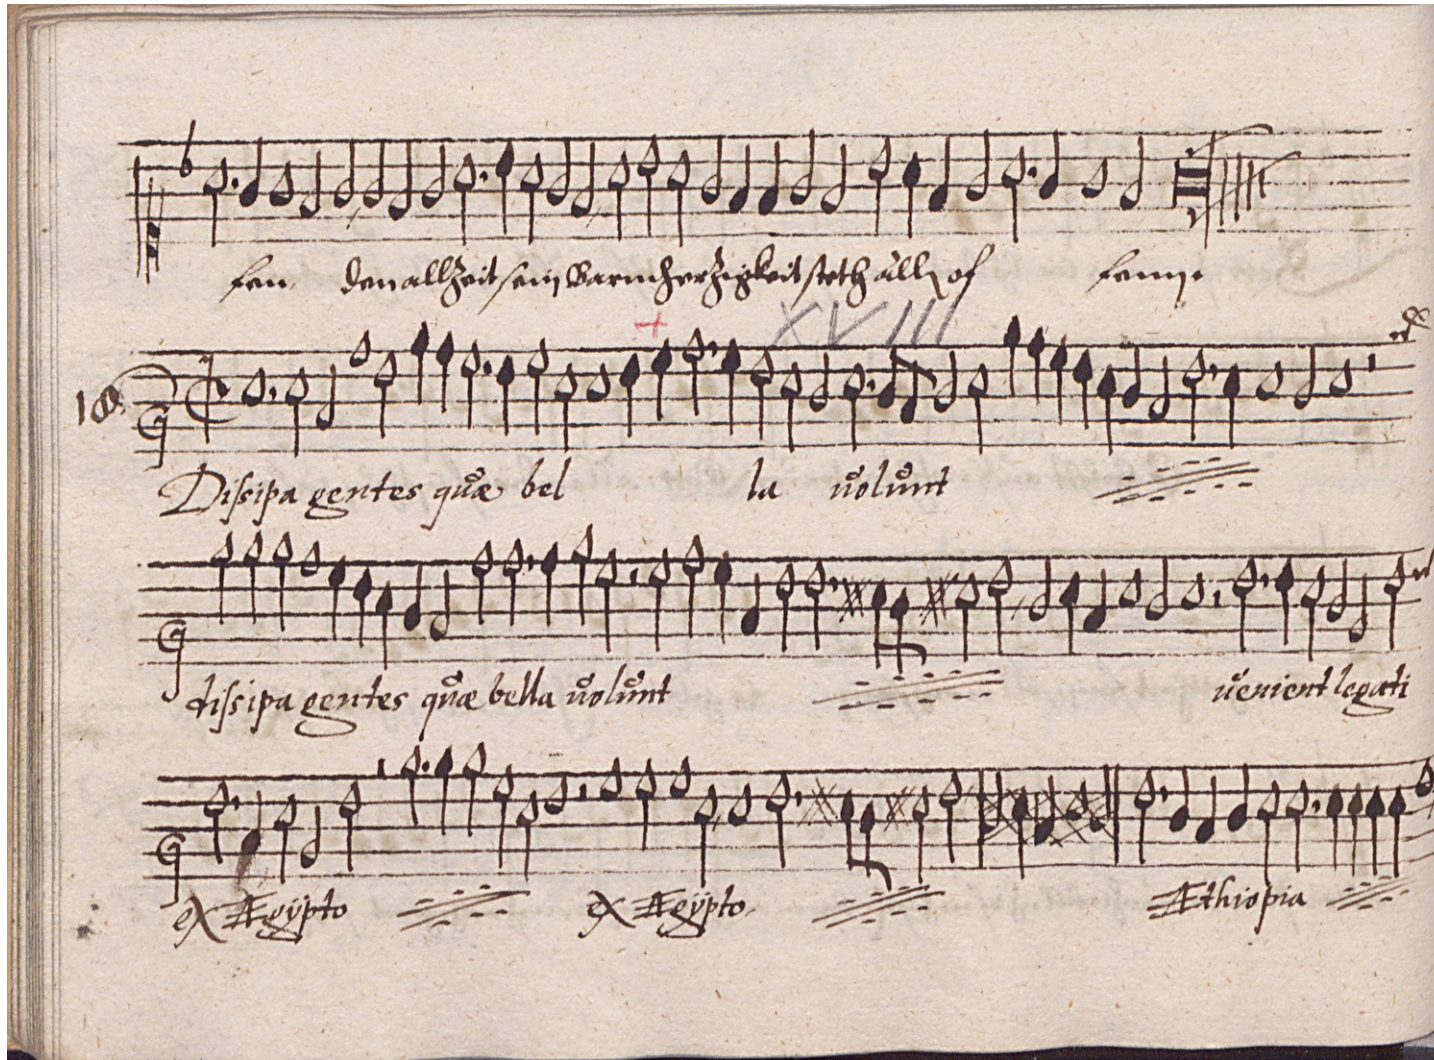 fen den allzeit sein Barmherzigkeit steth all of fenn.
XVIII
18.
Dissipa gentes quæ bel la volunt
dissipa gentes quæ bella volunt venient legati
ex Ægÿpto ex Ægÿpto Æthiopia